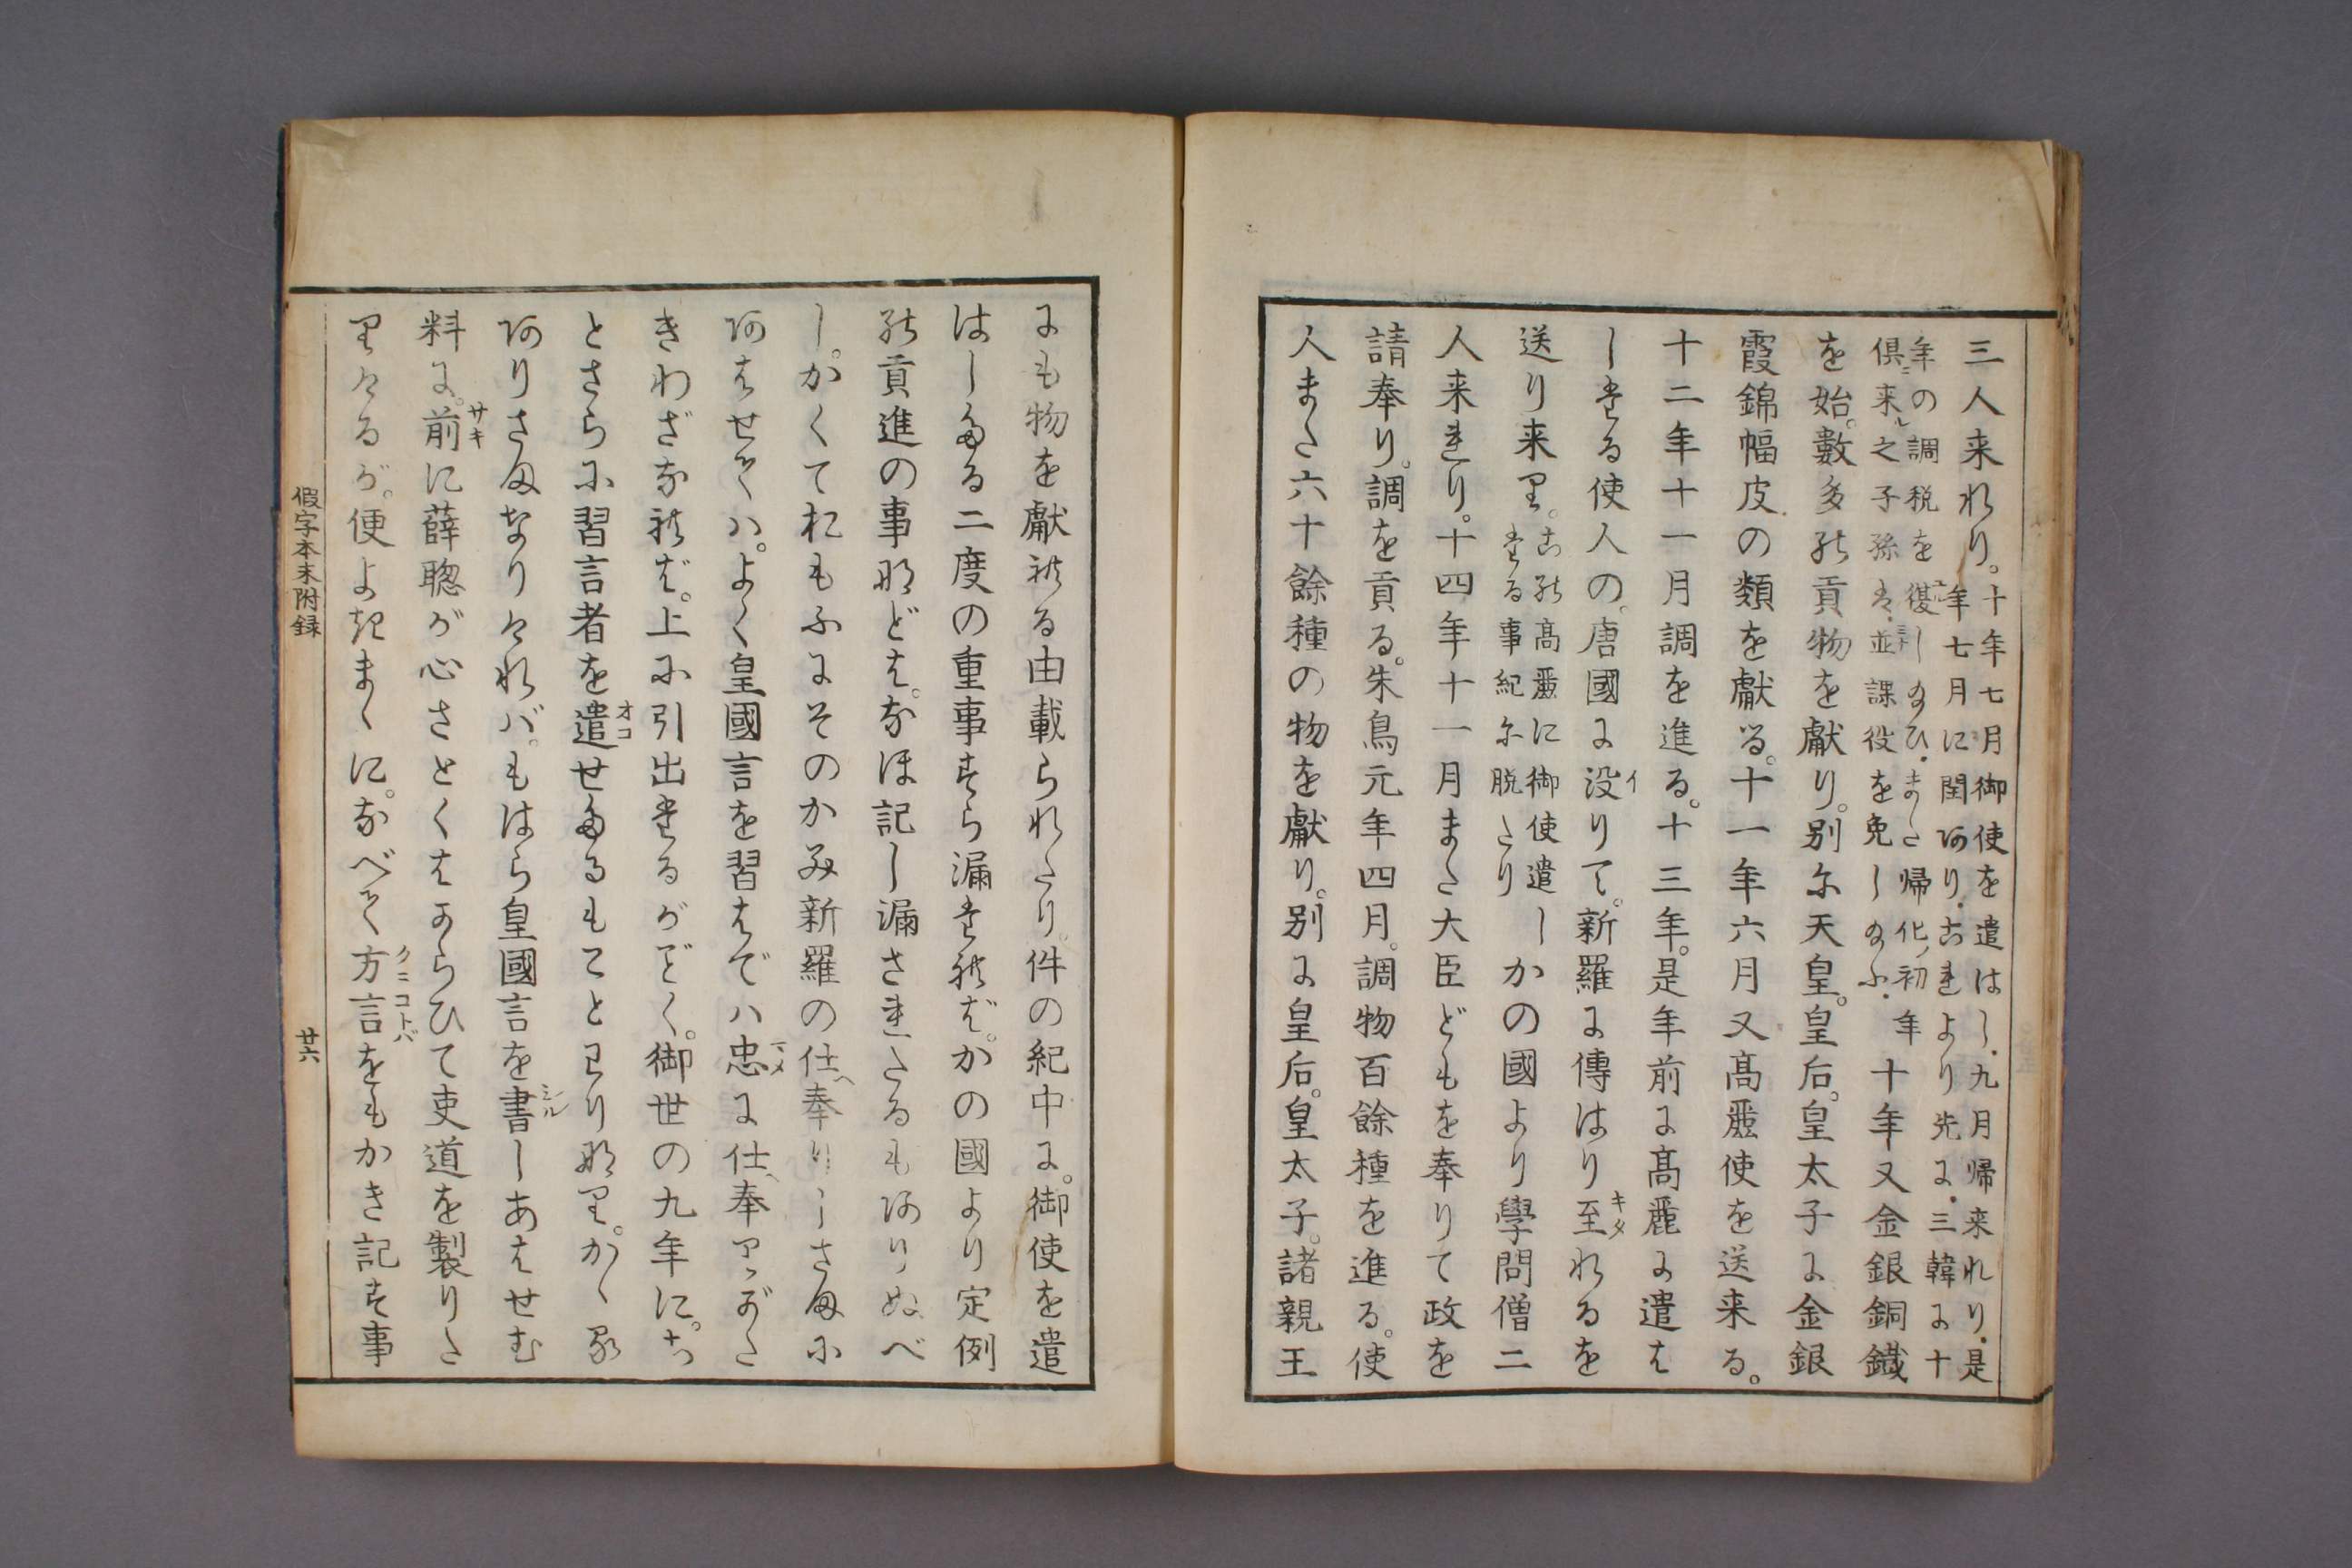 三人来れり。十年七月御使を遣はし、九月帰来れり、是
年七月に閏あり、これより先に、三韓に十
年の調税を復したまひ、また帰化初年
倶来ル之子孫は、並課役を免したまふ、
十年又金銀銅鐵
を始。數多の貢物を獻り。別に天皇。皇后。皇太子に金銀
霞錦幡皮の類を獻る。十一年六月又髙麗使を送来る。
十二年十一月調を進る。十三年。是年前に髙麗に遣は
したる使人の。唐國に没りて。新羅に傳はり至れるを
送り来り。この髙麗に御使遣し
たる事紀に脱たり
かの國より學問僧二
人来れり。十四年十一月また大臣どもを奉りて政を
請奉り。調を貢る。朱鳥元年四月。調物百餘種を進る。使
人また六十餘種の物を獻り。別に皇后。皇太子。諸親王
にも物を獻れる由載られたり。件の紀中に。御使を遣
はしたる二度の重事すら漏たれば。かの國より定例
の貢進の事などは。なほ記し漏されたるもありぬべ
し。かくておもふにそのかみ新羅の仕へ奉りしさまに
あはせては。よく皇國言を習はでハ忠に仕へ奉りがた
きわざなれば。上に引出たるがごとく。御世の九年に。こ
とさらに習言者を遣せたるもことわりなり。かゝる
ありさまなりければ。もはら皇國言を書しあはせむ
料に。前に薛聰が心さとくはからひて吏道を製りた
りけるが。便よきまゝに。なべて方言をもかき記す事
假字本末附録
廿六